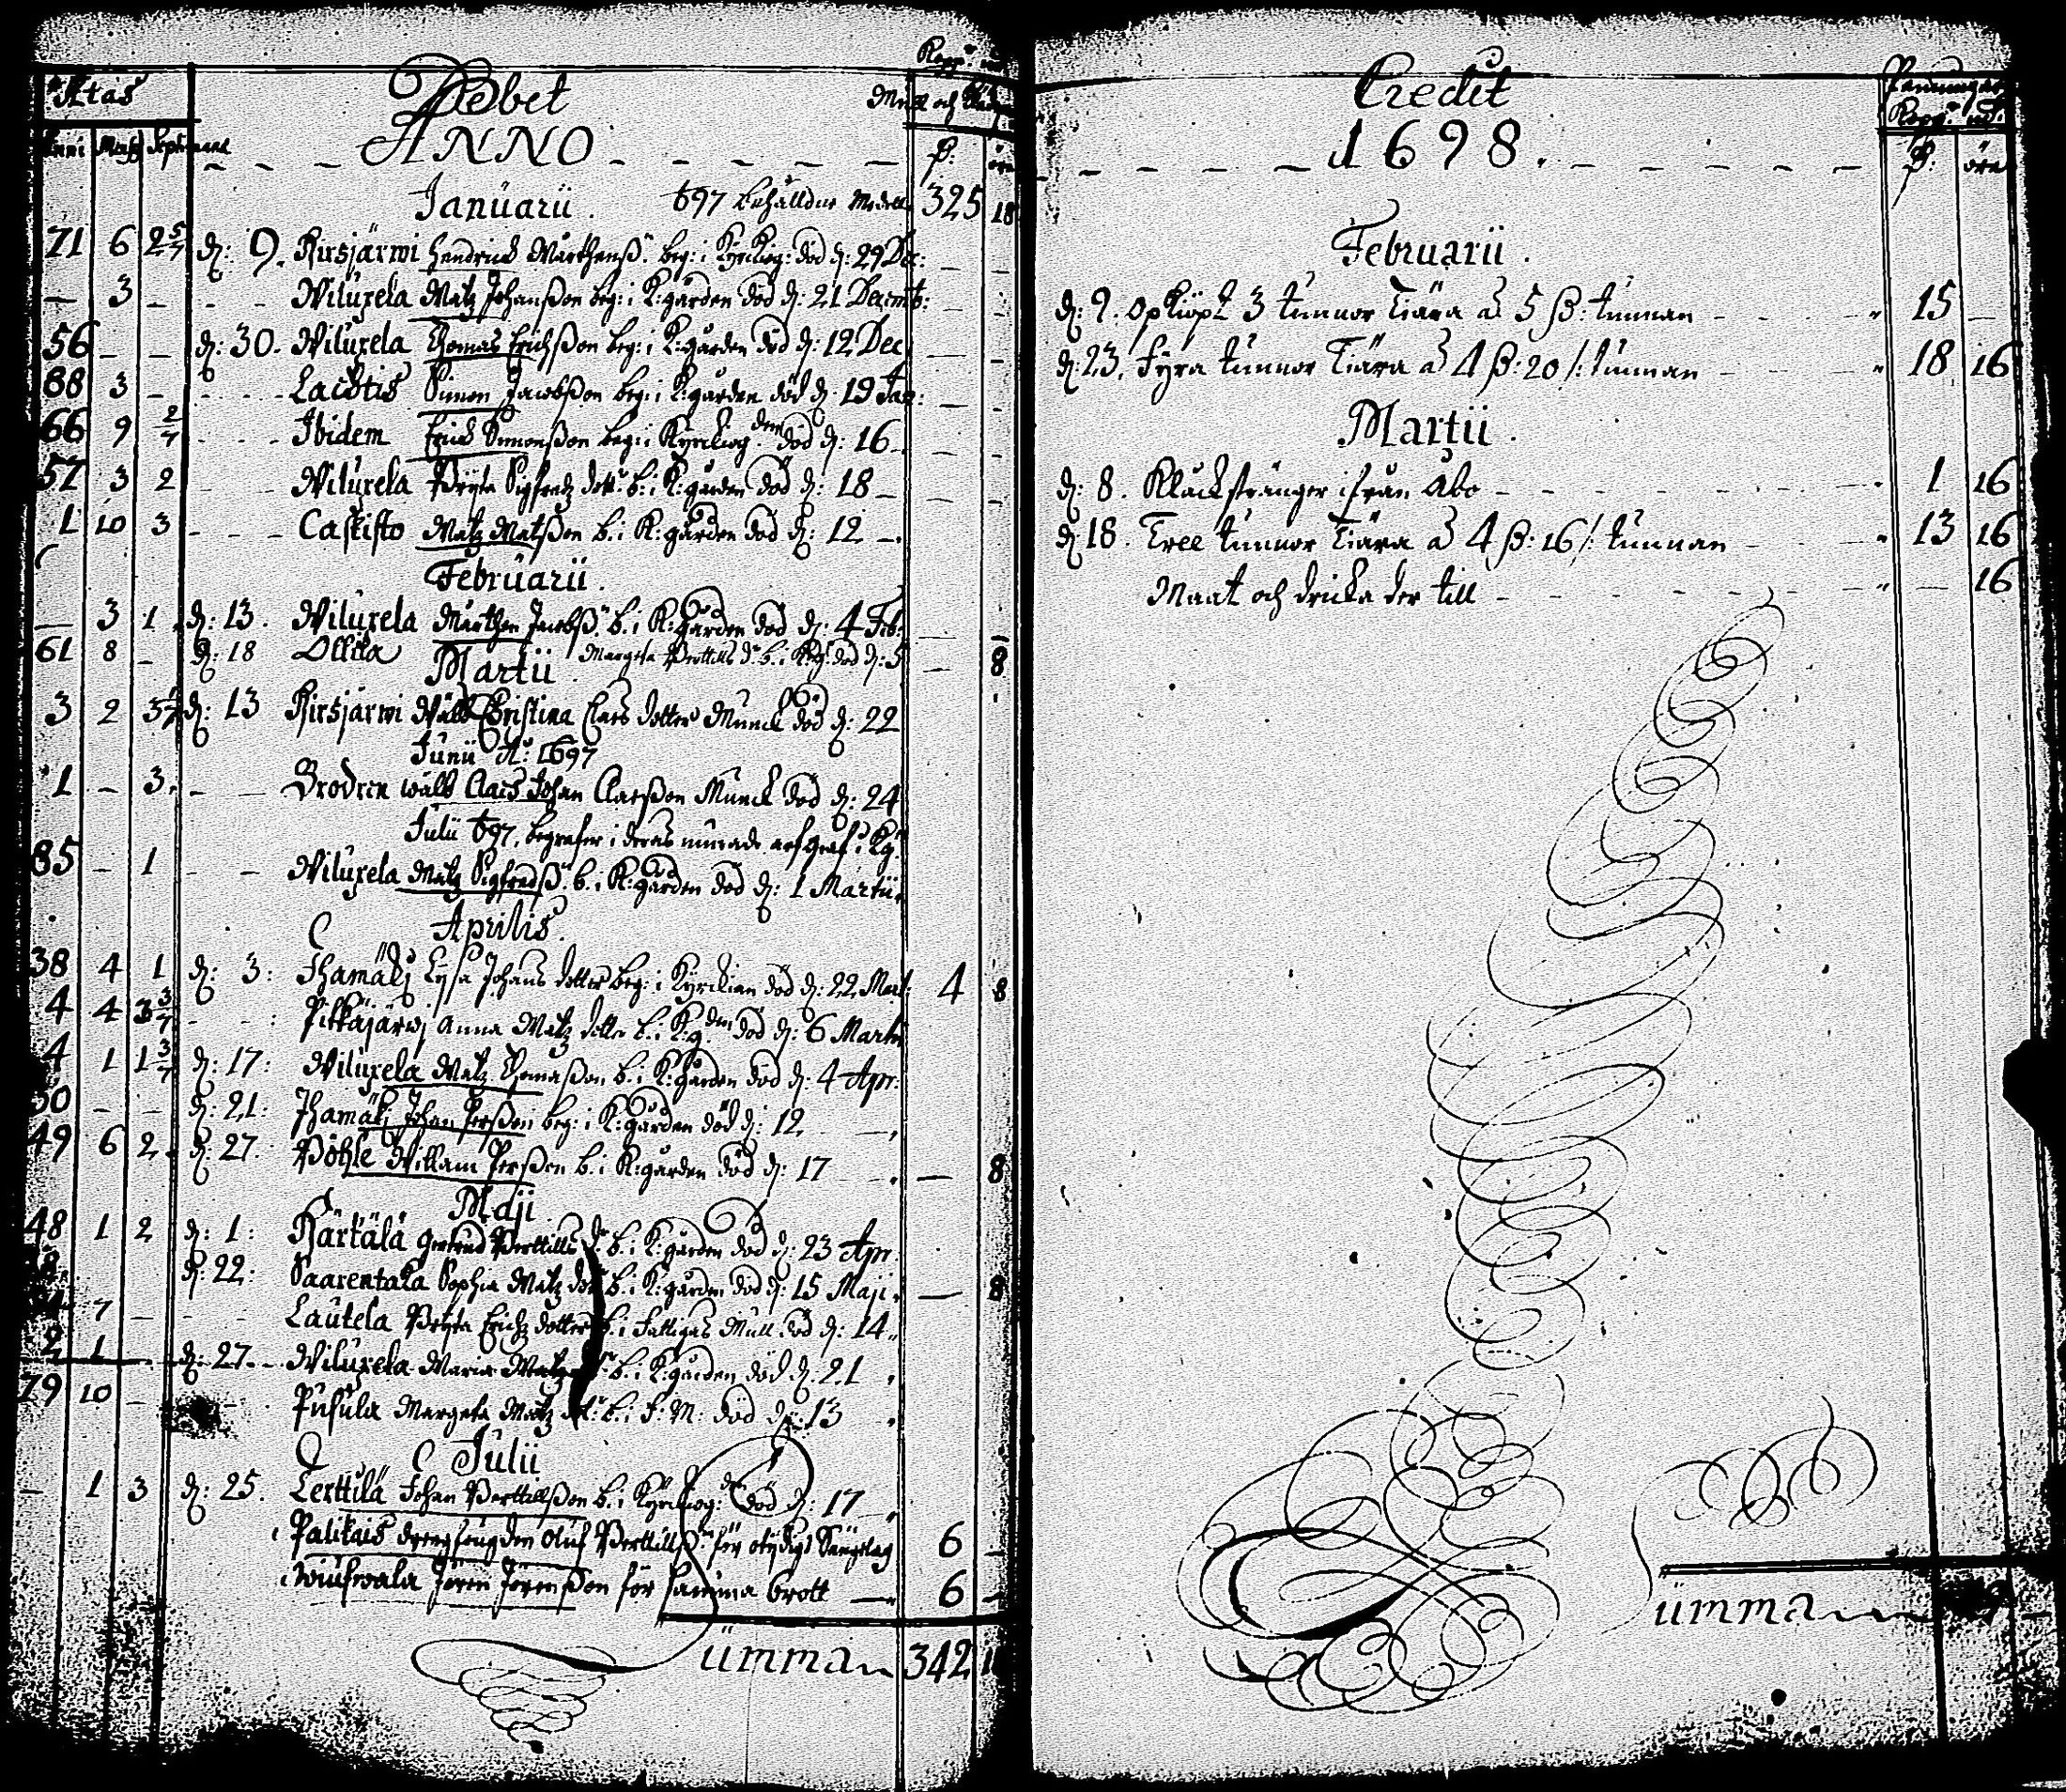 Ætas
Debet
Kopp: mt
Mull och
Anni Mens Septimanæ
ANNO
ß: öre
Januarii. 697 behålldne Medell 325 18
71 6 2 5/7 d: 9. Kirsjärwi Hendrich Mårthenß: beg: i Kyrkiog: död d: 29 De:
— 3 — Wiluxela Matz Johanßon beg: i K:gården död d: 21 Decemb:
56 — — d: 30. Wiluxela Thomas Erichßon beg: i K:gården död d: 12 Dec
88 3 — Lacstis Simon Jacobßon beg: i K:gården död d: 19 Jan:
66 9 2/7 Ibidem Erich Simonßon beg: i Kyrckiog den död d: 16
57 3 2 Wiluxela Bryta Sigfredz dott: b: i K:gården död d: 18
1 10 3 Caskisto Matz Matßon b: i K:gården död d: 12
Februarii.
— 3 1 d: 13. Wiluxela Mårthen Jacobß: b: i K:gården död d: 4 Feb:
61 8 — d: 18 Ollila Margeta Berttills d: b: i K:g: död d: 5 — 8
Martii.
3 2 3 1/7 d: 13 Kirsjärwi Wälb Christina Claes dotter Munck död d: 22
Junii Ao: 1697
1 — 3. Brodren wälb Claes Johan Claeßon Munck död d: 24
Julii 697, begrafne i deras murade arfgraf i Kg:
85 — 1 Wiluxela Matz Sigfredß: b: i K:gården död d: 1 Martii.
Aprilis.
38 4 1 d: 3: Ihamäki Lysa Johans dotter beg: i Kyrckian död d: 22 Mart: 4 8
4 4 3 3/7 Pitkäjärwi Anna Matz dotter b: i K:g den död d: 6 Martii
4 1 1 3/7 d: 17: Wiluxela Matz Thomaßon b: i K:gården död d: 4 Apr:
— — d: 21: Ihamäki Johan Perßon beg: i K:gården död d: 12
49 6 2. d: 27. Pöhle Willam Perßon b: i K:gården död d: 17 — 8
Maji
48 1 2 d: 1: Härkälä Gertrud Berttills d: b: i K:gården död d: 23 Apr
d: 22: Saarentaka Sophia Matz dott b: i K:gården död d: 15 Maji. — 8
7 — Lautela Bryta Erichz dotter b: i Fattigas Mull död d: 14
2 1 — d: 27. Wiluxela Maria Matz b: i K:gården död d: 21
79 10 — Pusula Margeta Matz dot: b: i F: M: död d: 13
Julii
— 1 3 d: 25. Terttilä Johan Berttillßon b: i Kyrckiog: den död d: 17
Palikais Oluf Berttillß: för otydigt 6 —
Jören Jörenßon för samma brott — 6 —
ümma 342
Credit
Penningar
Kopp: mt:
1698.
ß: öre
Februarii.
d: 9. opkiöpt 3 tunnor Tiära à 5 ß: tunnan 15 —
d: 23. Fyra tunnor Tiära à 4 ß: 20 /: tunnan 18 16
Martii.
d: 8. Klåckstränger ifrån Åbo 1 16
d: 18. Tree tunnor Tiära à 4 ß: 16 /: tunnan 13 16
Maat och dricka der till — 16
ümma